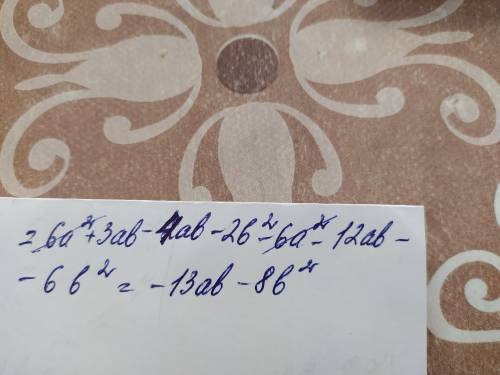 = 6a² + 3ab - 4ab - 2b² - 6a² - 12ab -
- 6b² = -13ab - 8b²